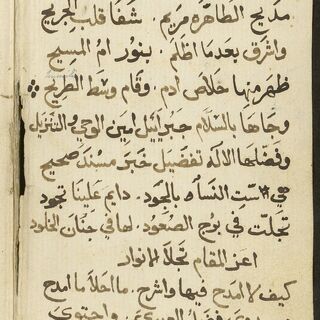 مديح الطاهره مريم . شفا قلب الجريح
واشرق بعدما اظلم . بنور ام المسيح
ظهر منها خلاص ادم . وقام وسط الطريح
وجاها بالسلام جبراييل امين الوحي والتنزيل
وفضلها الاله تفضيل خبر مسند صحيح
هي ست النساء بالجود . دايم علينا تجود
تجلت في برج الصعود . لها في جنان الخلود
اعز المقام تجلا لانوار
كيف لا امدح فيها واشرح . ما احلا ما امدح